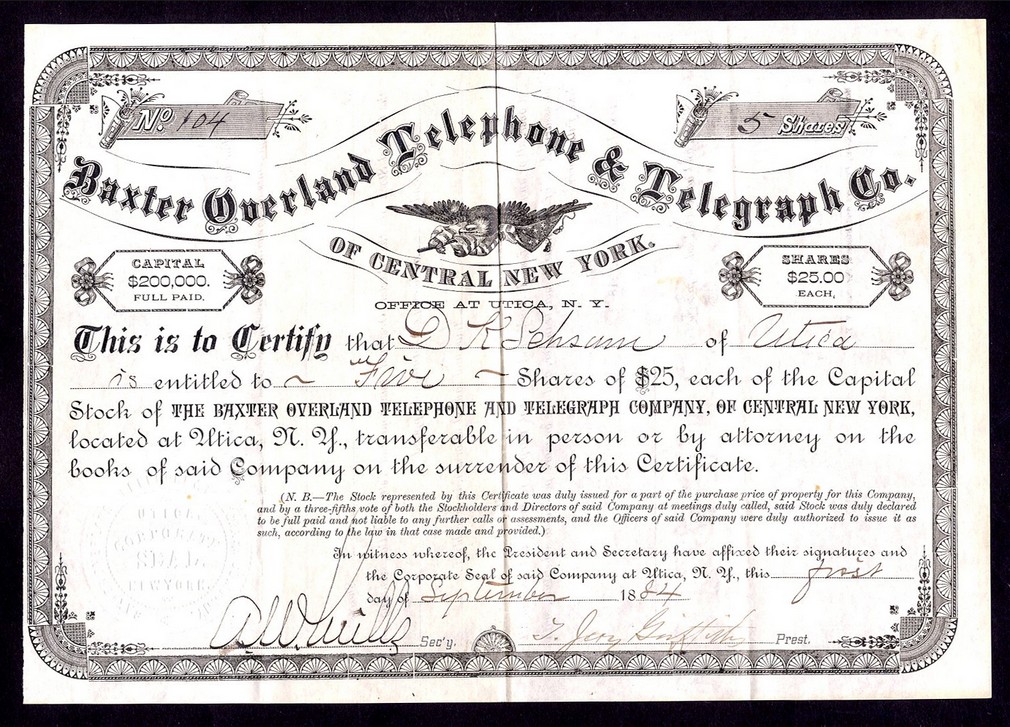 No. 104
5 Shares
Baxter Overland Telephone & Telegraph Co.
OF CENTRAL NEW YORK.
CAPITAL
$200,000.
FULL PAID.
SHARES
$25.00
EACH,
OFFICE AT UTICA, N. Y.
This is to Certify that D K of Utica
is entitled to ~ Five ~ Shares of $25, each of the Capital
Stock of THE BAXTER OVERLAND TELEPHONE AND TELEGRAPH COMPANY, OF CENTRAL NEW YORK,
located at Utica, N. Y., transferable in person or by attorney on the
books of said Company on the surrender of this Certificate.
(N. B.—The Stock represented by this Certificate was duly issued for a part of the purchase price of property for this Company,
and by a three-fifths vote of both the Stockholders and Directors of said Company at meetings duly called, said Stock was duly declared
to be full paid and not liable to any further calls or assessments, and the Officers of said Company were duly authorized to issue it as
such, according to the law in that case made and provided.)
In witness whereof, the President and Secretary have affixed their signatures and
the Corporate Seal of said Company at Utica, N. Y., this first
day of September 1884
Sec'y.
Prest.
UTICA,
CORPORATE
SEAL
NEW YORK.